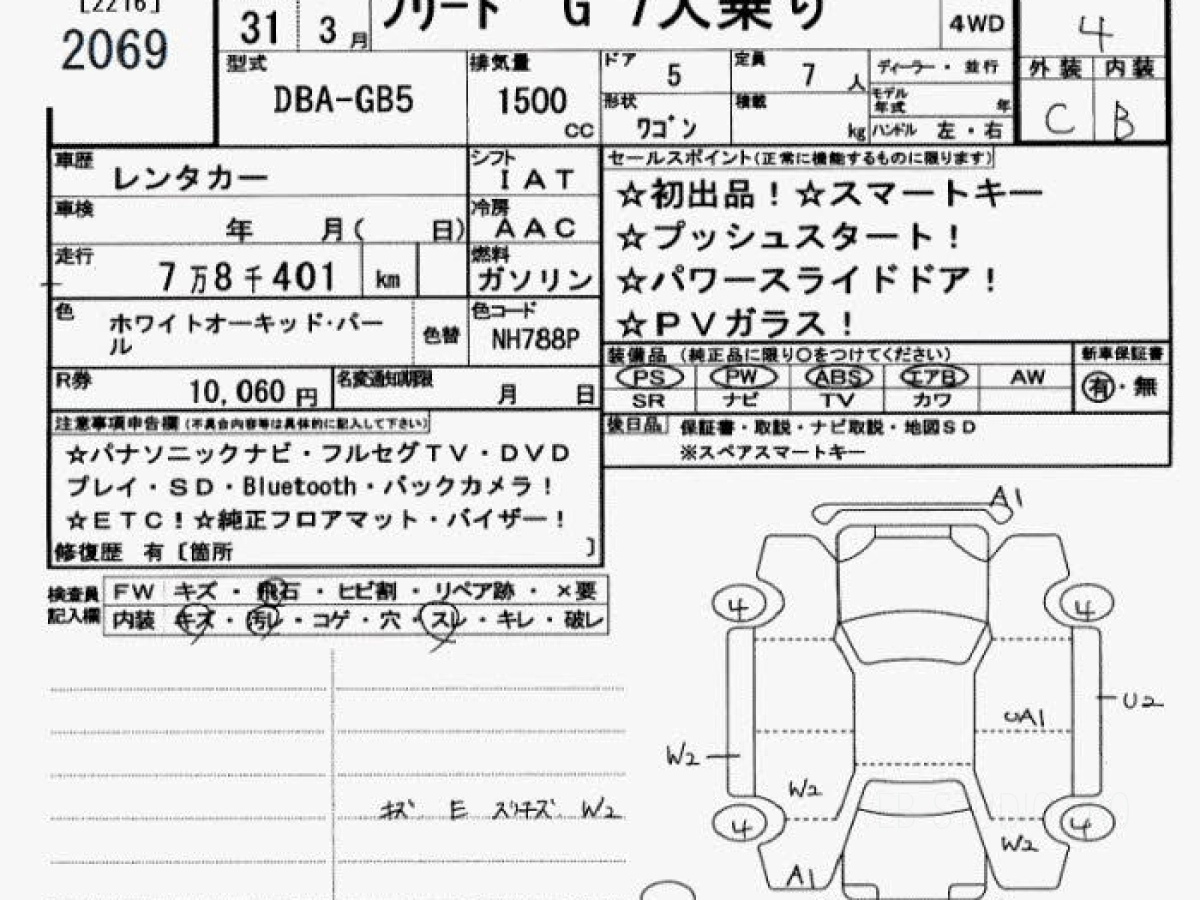 [2216]
2069
31 3月
フリード G 7人乗り
4WD
4
型式
DBA-GB5
排気量
1500
CC
ドア
5
定員
7 人
ディーラー・並行
外装 内装
形状
ワゴン
積載
kg
モデル年式 年
ハンドル 左・右
C B
車歴
レンタカー
シフト
IAT
セールスポイント(正常に機能するものに限ります)
☆初出品!☆スマートキー
☆プッシュスタート!
☆パワースライドドア!
☆PVガラス!
車検
年 月( 日)
冷房
AAC
走行
7万8千401 km
燃料
ガソリン
色
ホワイトオーキッド・パー
ル
色替
色コード
NH788P
装備品 (純正品に限り○をつけてください)
新車保証書
PS PW ABS エアB AW
SR ナビ TV カワ
有・無
R券
10,060 円
名変通知期限
月 日
後日品
保証書・取説・ナビ取説・地図SD
※スペアスマートキー
注意事項申告欄(不具合内容等は具体的に記入して下さい)
☆パナソニックナビ・フルセグTV・DVD
プレイ・SD・Bluetooth・バックカメラ!
☆ETC!☆純正フロアマット・バイザー!
修復歴 有〔箇所 〕
検査員
記入欄
FW キズ・飛石・ヒビ割・リペア跡・×要
内装 キズ・汚レ・コゲ・穴・スレ・キレ・破レ
A1
4 4
U2
UA1
W2
W2
4 4
W2
A1
W2